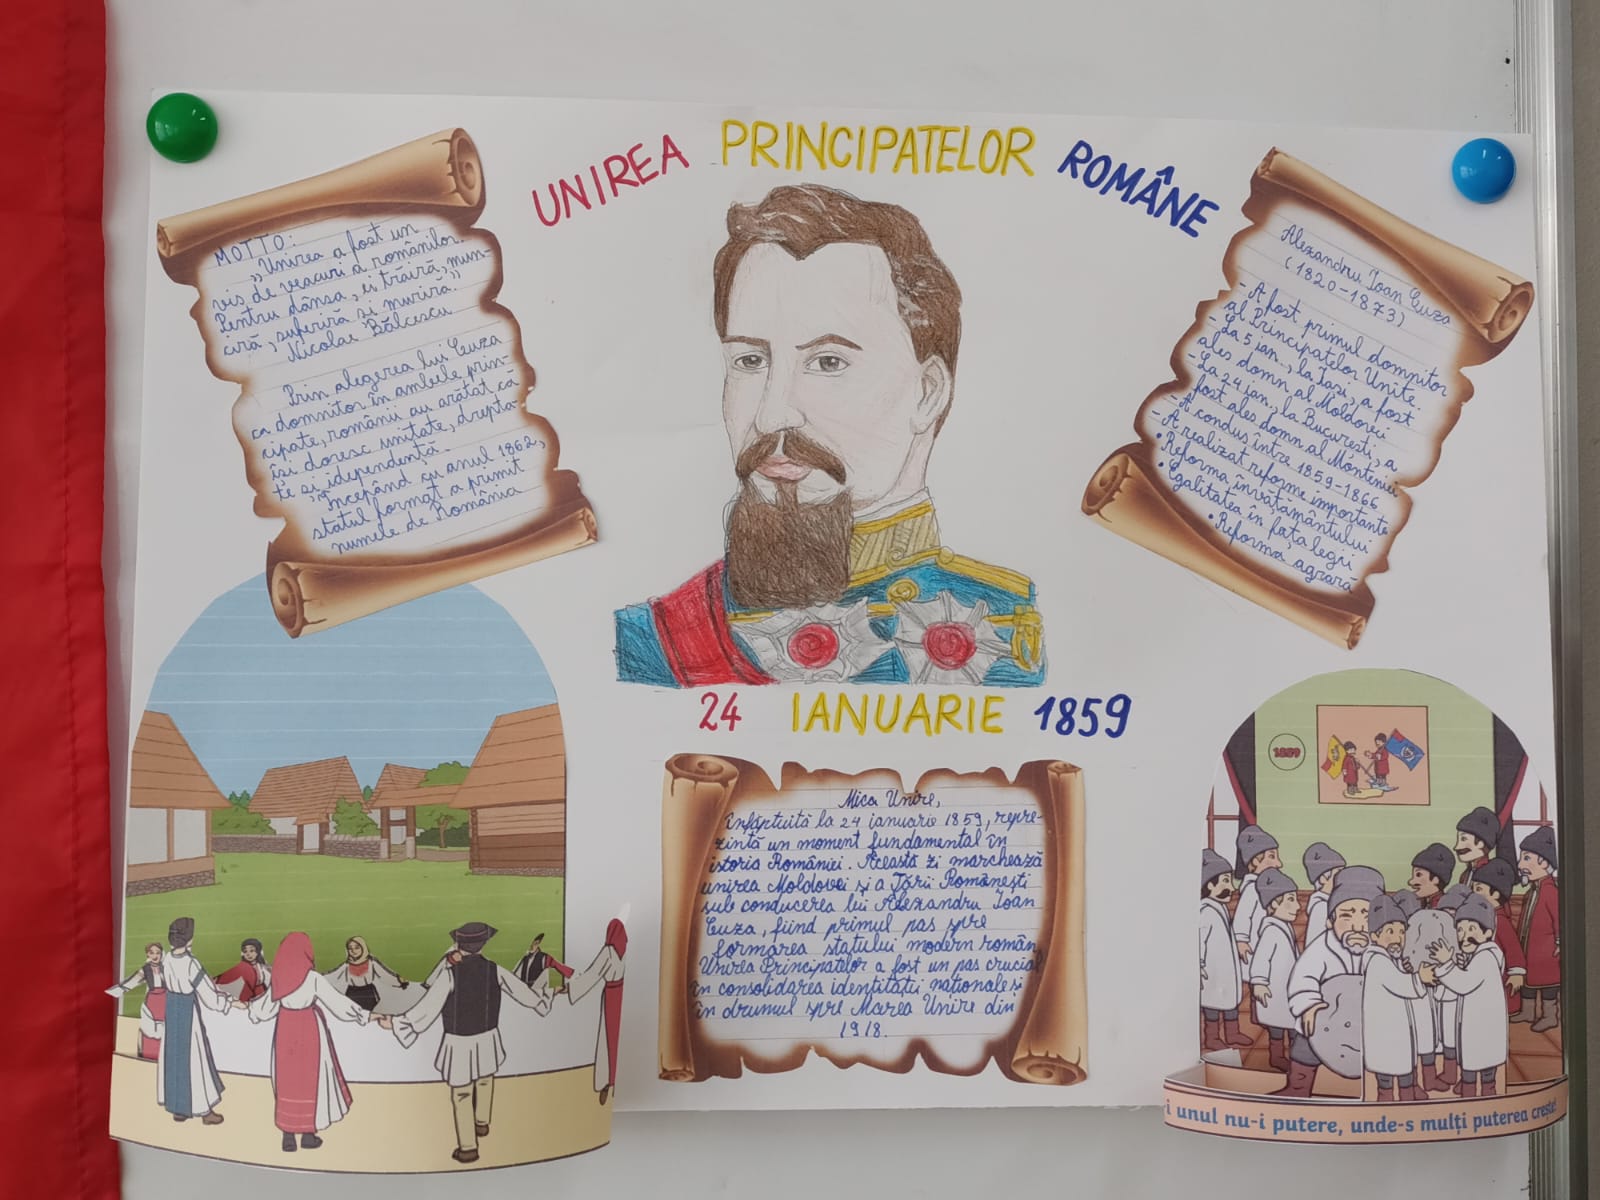 UNIREA PRINCIPATELOR ROMÂNE
MOTTO:
„Unirea a fost un
vis de veacuri a românilor.
Pentru dânsa, ei trăiră, mun-
ciră, suferiră și muriră.”
Nicolae Bălcescu
Prin alegerea lui Cuza
ca domnitor în ambele prin-
cipate, românii au arătat că
își doresc unitate, drepta-
te și idependență.
Începând cu anul 1862,
statul format a primit
numele de România
Alexandru Ioan Cuza
(1820-1873)
- A fost primul domnitor
al Principatelor Unite.
- La 5 ian., la Iași, a fost
ales domn al Moldovei
- La 24 ian., la București, a
fost ales domn al Munteniei
- A condus între 1859-1866
- A realizat reforme importante
• Reforma învățământului
• Egalitatea în fața legii
• Reforma agrară
24 IANUARIE 1859
Mica Unire,
înfăptuită la 24 ianuarie 1859, repre-
zintă un moment fundamental în
istoria României. Această zi marchează
unirea Moldovei și a Țării Românești
sub conducerea lui Alexandru Ioan
Cuza, fiind primul pas spre
formarea statului modern român.
Unirea Principatelor a fost un pas crucial
în consolidarea identității naționale și
în drumul spre Marea Unire din
1918.
1859
i unul nu-i putere, unde-s mulți puterea crește!